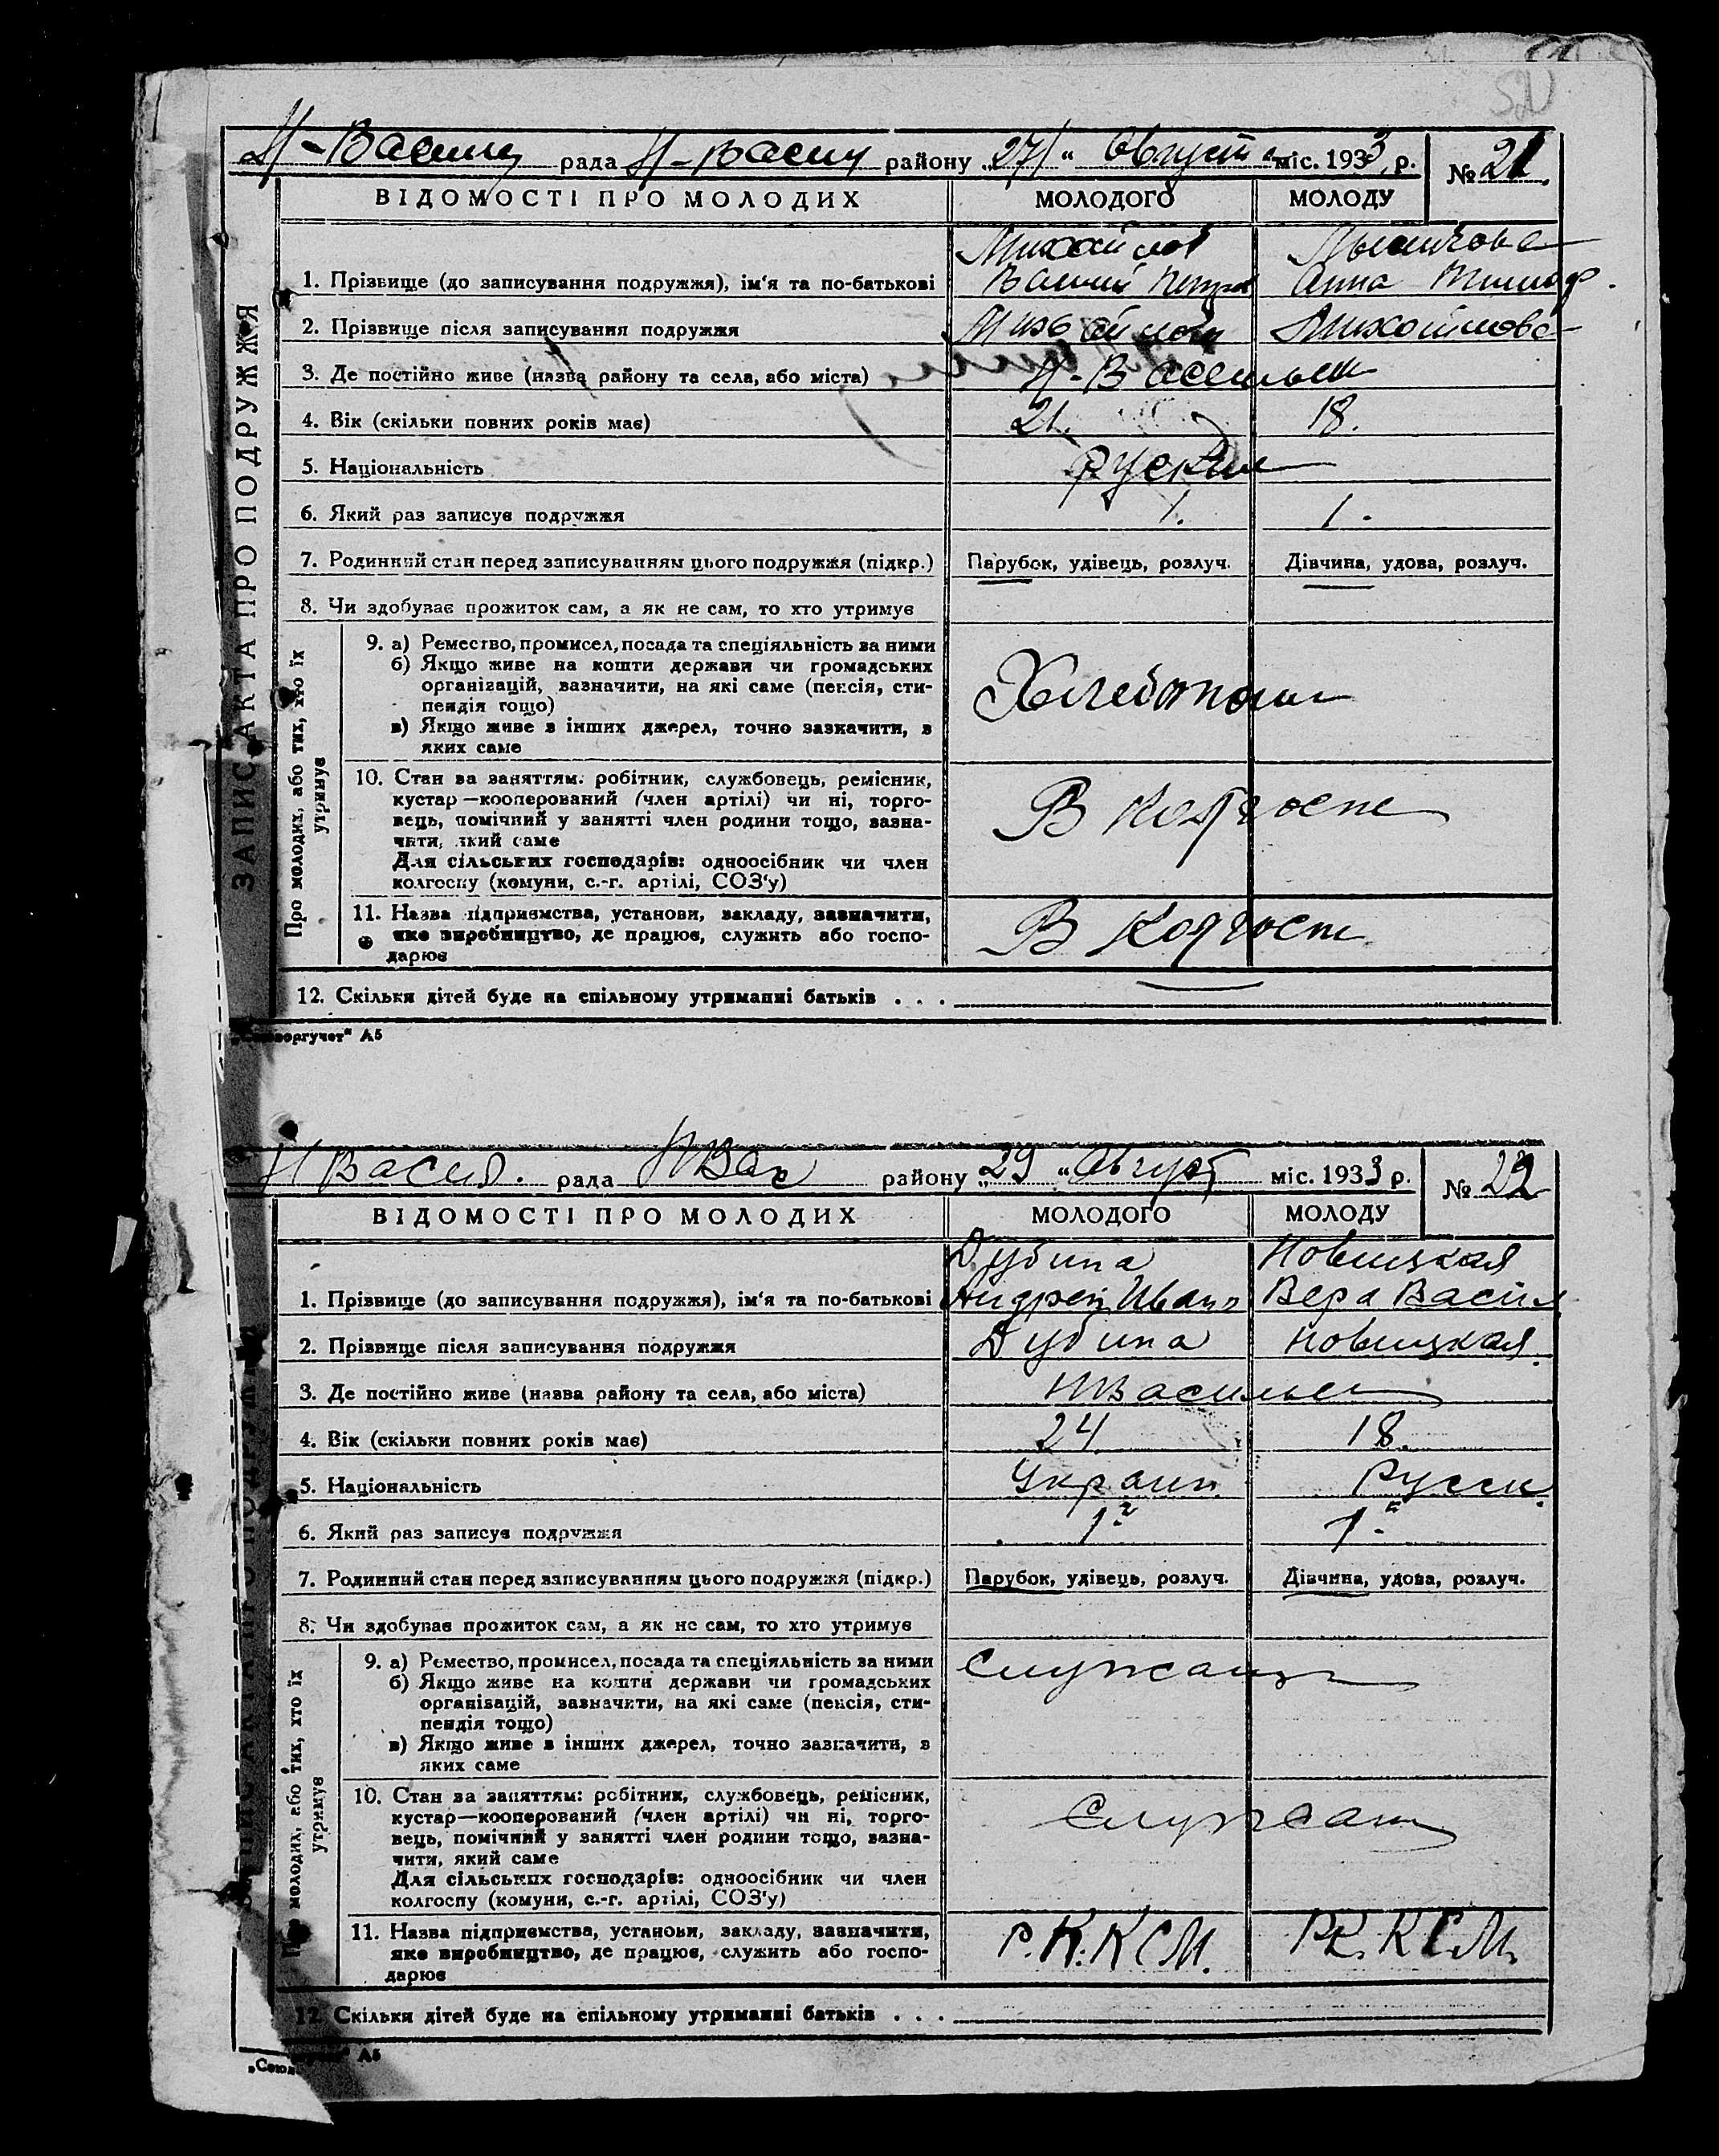 Н-Васил рада Н-Васил району „27“ Август міс. 1933 р. № 21
ВІДОМОСТІ ПРО МОЛОДИХ МОЛОДОГО МОЛОДУ
ЗАПИС АКТА ПРО ПОДРУЖЖЯ
Михайлов
1. Прізвище (до записування подружжя), ім'я та по-батькові Петров Анна
2. Прізвище після записування подружжя Михайлов Михайлова
3. Де постійно живе (назва району та села, або міста) Н-Васильев
4. Вік (скільки повних років має) 21. 18.
5. Національність Руские
6. Який раз записує подружжя 1. 1.
7. Родинний стан перед записуванням цього подружжя (підкр.) Парубок, удівець, розлуч. Дівчина, удова, розлуч.
8. Чи здобуває прожиток сам, а як не сам, то хто утримує
Про молодих, або тих, хто їх утримує
9. а) Ремество, промисел, посада та спеціяльність за ними
б) Якщо живе на кошти держави чи громадських
організацій, зазначити, на які саме (пенсія, сти-
пендія тощо)
в) Якщо живе з інших джерел, точно зазначити, з
яких саме
Хлебопаш
10. Стан за заняттям: робітник, службовець, ремісник,
кустар—кооперований (член артілі) чи ні, торго-
вець, помічний у занятті член родини тощо, зазна-
чити, який саме
Для сільських господарів: одноосібник чи член
колгоспу (комуни, с.-г. артілі, СОЗ'у)
В колгоспе
11. Назва підприємства, установи, закладу, зазначити,
яке виробництво, де працює, служить або госпо-
дарює
В колгосп
12. Скільки дітей буде на спільному утриманні батьків . . .
„Союзоргучет“ А5
Н Васил. рада НВас району „29“ Август міс. 1933 р. № 22
ВІДОМОСТІ ПРО МОЛОДИХ МОЛОДОГО МОЛОДУ
Дубина Новицкая
1. Прізвище (до записування подружжя), ім'я та по-батькові Андрей Иван Вера Васил
2. Прізвище після записування подружжя Дубина Новицкая
3. Де постійно живе (назва району та села, або міста) НВасильев
4. Вік (скільки повних років має) 24 18.
5. Національність Украин. Русск.
6. Який раз записує подружжя 1й 1й
7. Родинний стан перед записуванням цього подружжя (підкр.) Парубок, удівець, розлуч. Дівчина, удова, розлуч.
8. Чи здобуває прожиток сам, а як не сам, то хто утримує
молодих, або тих, хто їх утримує
9. а) Ремество, промисел, посада та спеціяльність за ними
б) Якщо живе на кошти держави чи громадських
організацій, зазначити, на які саме (пенсія, сти-
пендія тощо)
в) Якщо живе з інших джерел, точно зазначити, з
яких саме
Служащ
10. Стан за заняттям: робітник, службовець, ремісник,
кустар—кооперований (член артілі) чи ні, торго-
вець, помічний у занятті член родини тощо, зазна-
чити, який саме
Для сільських господарів: одноосібник чи член
колгоспу (комуни, с.-г. артілі, СОЗ'у)
Служащ
11. Назва підприємства, установи, закладу, зазначити,
яке виробництво, де працює, служить або госпо-
дарює
Р.К.КСМ. РК.КСМ.
12. Скільки дітей буде на спільному утриманні батьків . . .